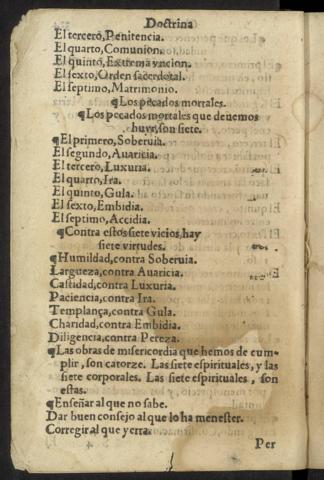 Doctrina
El tercero, Penitencia.
El quarto, Comunion.
El quinto, Extrema vncion.
El sexto, Orden sacerdotal.
El septimo, Matrimonio.
¶ Los pecados mortales.
¶ Los pecados mortales que deuemos
huyr, son siete.
¶ El primero, Soberuia.
El segundo, Auaricia.
El tercero, Luxuria.
El quarto, Ira.
El quinto, Gula.
El sexto, Embidia.
El septimo, Accidia.
¶ Contra estos siete vicios, hay
siete virtudes.
¶ Humildad, contra Soberuia.
Largueza, contra Auaricia.
Castidad, contra Luxuria.
Paciencia, contra Ira.
Templança, contra Gula.
Charidad, contra Embidia.
Diligencia, contra Pereza.
¶ Las obras de misericordia que hemos de cum-
plir, son catorze. Las siete espirituales, y las
siete corporales. Las siete espirituales, son
estas.
¶ Enseñar al que no sabe.
Dar buen consejo al que lo ha menester.
Corregir al que yerra.
Per